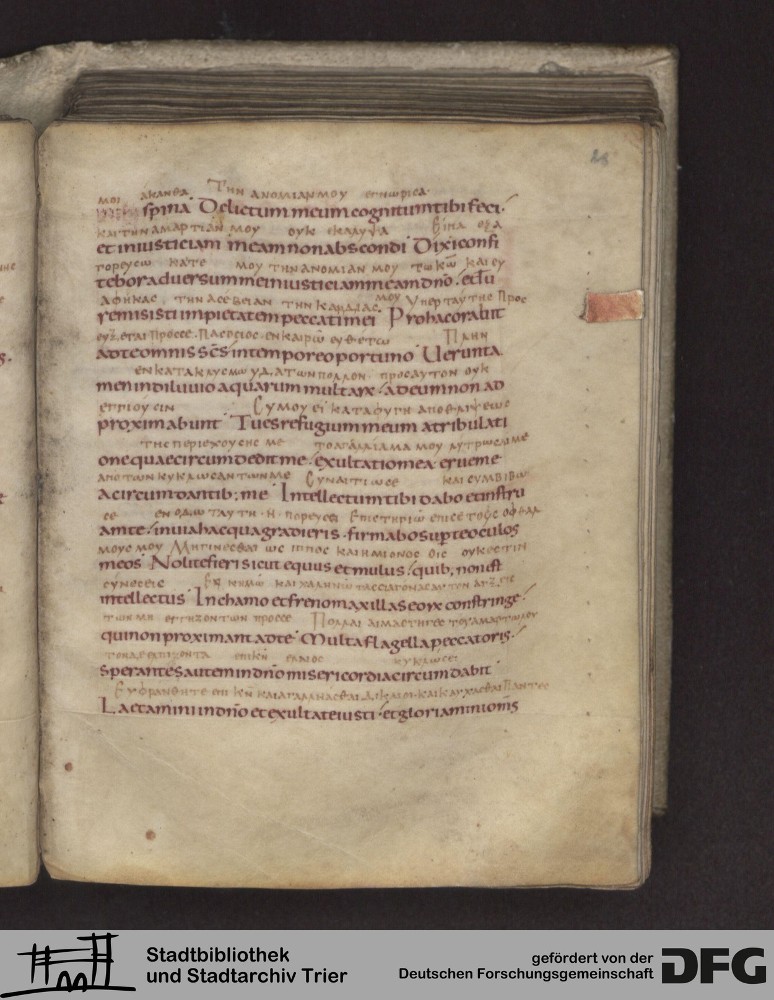 28
μοι ακανθα Την ανομιαν μου εγνωρισα
spina Delictum meum cognitum tibi feci.
και την αμαρτιαν μου ουκ εκαλυψα Ειπα εξα
et iniusticiam meam non abscondi Dixi confi
γορευσω κατε μου την ανομιαν μου τω κω και συ
tebor adversum me iniusticiam meam dno. et tu
αφηκας, την ασεβειαν της καρδιας μου Υπερ ταυτης προς
remisisti impietatem peccati mei Pro hac orabit
ευξεται προς σε πας οσιος εν καιρω ευθετω Πλην
ad te omnis scs in tempore oportuno Verunta
εν κατακλυσμω υδατων πολλων προς αυτον ουκ
men in diluvio aquarum multarx ad eum non ad
εγγιουσιν Συ μου ει καταφυγη απο θλιψεως
proximabunt Tu es refugium meum a tribulati
της περιεχουσης με το αγαλλιαμα μου λυτρωσαι με
one quae circumdedit me exultatio mea erue me
απο των κυκλωσαντων με Συνετιω σε και συμβιβω
a circumdantib; me Intellectum tibi dabo et instru
σε εν οδω ταυτη η πορευση Επιστηριω επι σε τους οφθαλ
am te in via hac qua gradieris firmabo sup te oculos
μους μου Μη γινεσθαι ως ιππος και ημιονος οις ουκ εστιν
meos Nolite fieri sicut equus et mulus quib; non est
συνεσις Εν κημω και χαλινω τας σιαγονας αυτων αγξεις
intellectus In chamo et freno maxillas eorx constringe
των μη εγγιζοντων προς σε Πολλαι αι μαστιγες του αμαρτωλου
qui non proximant ad te Multa flagella peccatoris.
τον δε ελπιζοντα επι κν ελεος κυκλωσει
sperantes autem in dno misericordia circumdabit
Ευφρανθητε επι κν και αγαλλιασθαι δικαιοι και καυχασθαι παντες
Laetamini in dno et exultate iusti et gloriamini oms
Stadtbibliothek
und Stadtarchiv Trier
gefördert von der
Deutschen Forschungsgemeinschaft
DFG